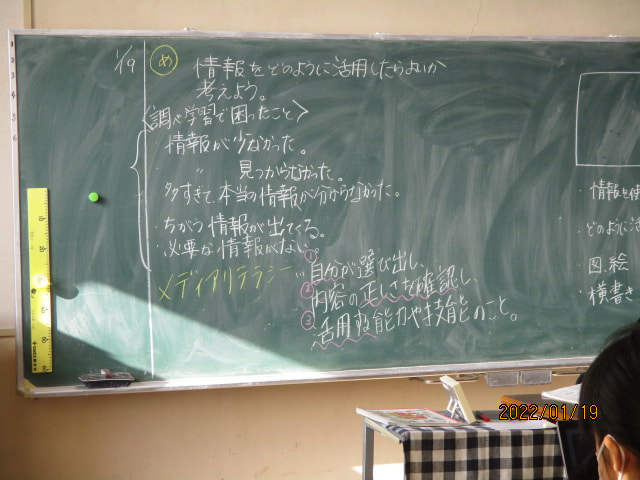 1/19
め
情報をどのように活用したらよいか
考えよう。
〈調べ学習で困ったこと〉
・情報が少なかった。
・〃 見つからなかった。
・多すぎて、本当の情報が分からなかった。
・ちがう情報が出てくる。
・必要な情報がない。
メディアリテラシー…①自分が選び出し、
②内容の正しさを確認し、
③活用する能力や技能のこと。
・情報を使
・どのように活
・図、絵
・横書き
2022/01/19